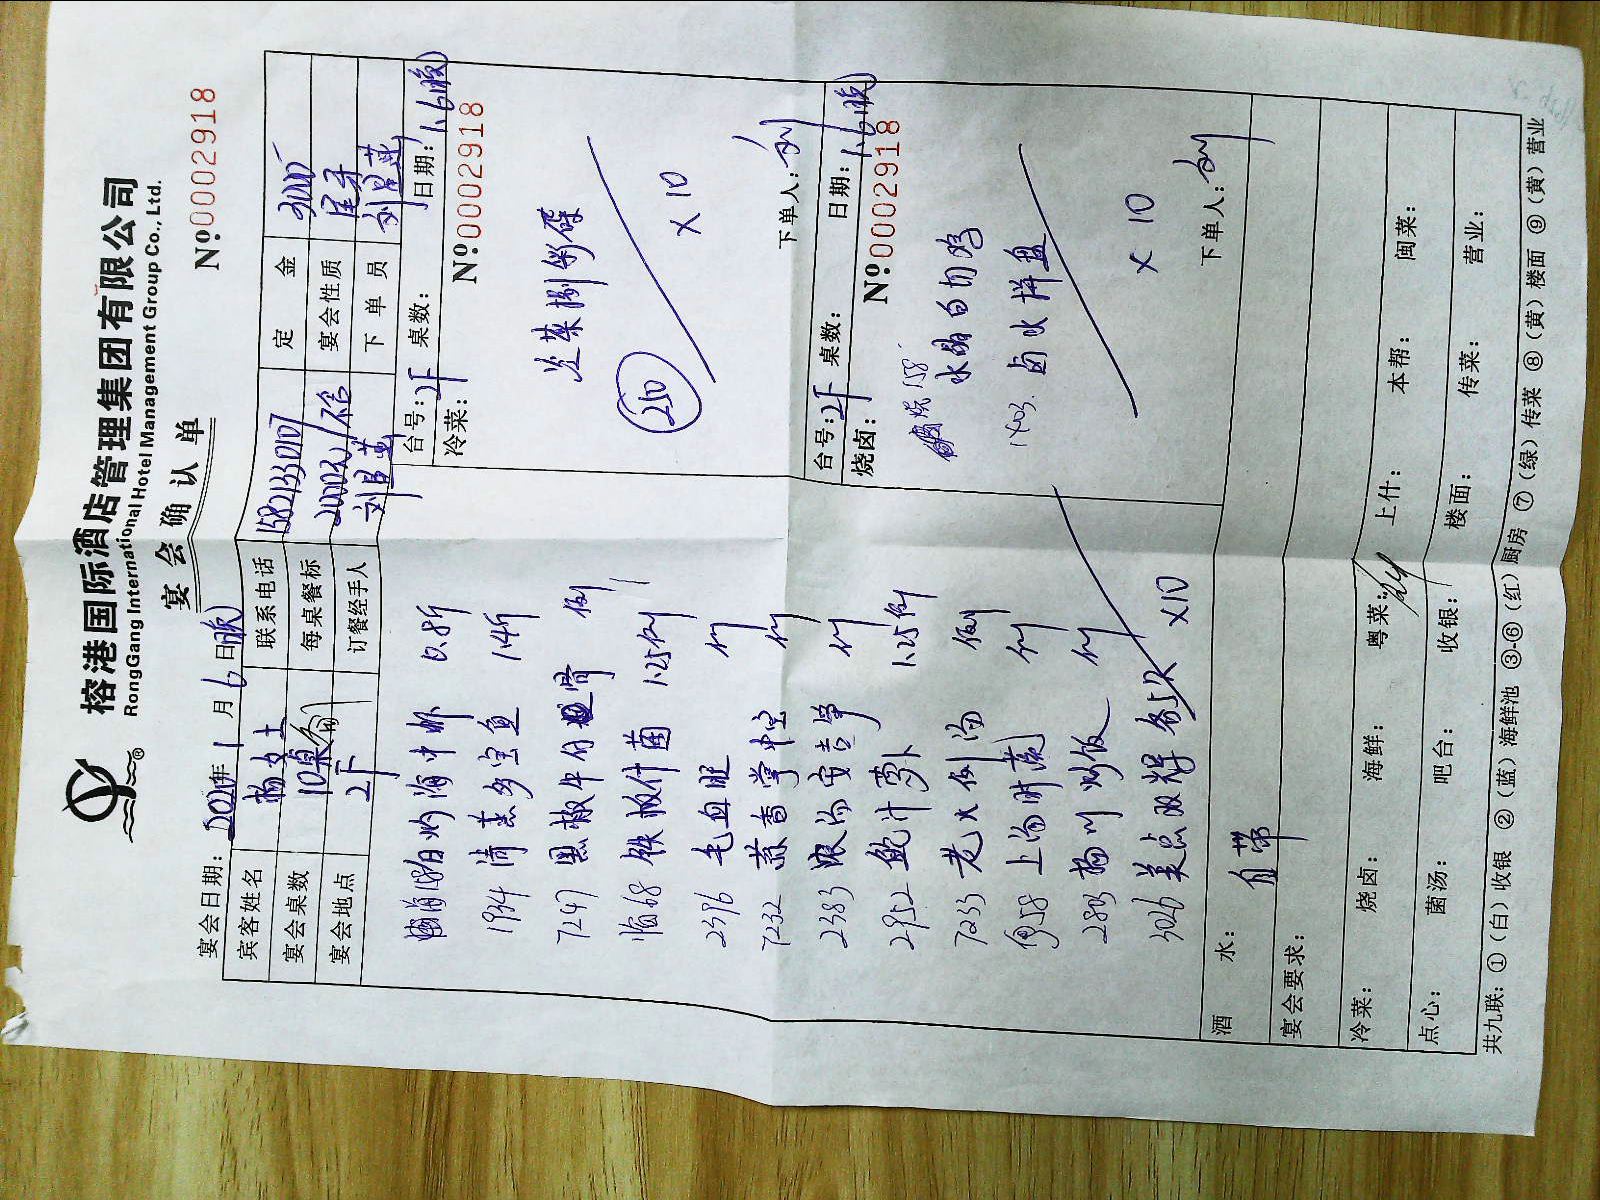 榕港国际酒店管理集团有限公司
RongGang International Hotel Management Group Co., Ltd.
宴会确认单
№00002918
宴会日期：2020年1月6日(晚)
宾客姓名 杨女士 联系电话 15821330107 定金
宴会桌数 10桌 每桌餐标 2000元/不含 宴会性质 尾牙
宴会地点 2F 订餐经手人 下单员
白灼海中虾 0.8斤
1934 清蒸多宝鱼 1.4斤
7247 黑椒牛仔骨 例
铁板什菌 1.25例
2396 毛血旺 例
7232 例
2383 浓汤安吉笋 例
2952 鲍汁萝卜 1.25例
7233 老火例汤 例
上汤时蔬 例
2803 扬州炒饭 例
3026 美点双辉 各5只 ×10
台号：2F 桌数： 日期：1.6(晚)
冷菜： №00002918
八彩碟
210
×10
下单人：
台号：2F 桌数： 日期：1.6(晚)
烧卤： №00002918
158 水晶白切鸡
1403. 卤水拼盘
×10
下单人：
酒水： 自带
宴会要求：
冷菜： 烧卤： 海鲜： 粤菜： 上什： 本帮： 闽菜：
点心： 菌汤： 吧台： 收银： 楼面： 传菜： 营业：
共九联：①（白）收银 ②（蓝）海鲜池 ③-⑥（红）厨房 ⑦（绿）传菜 ⑧（黄）楼面 ⑨（黄）营业